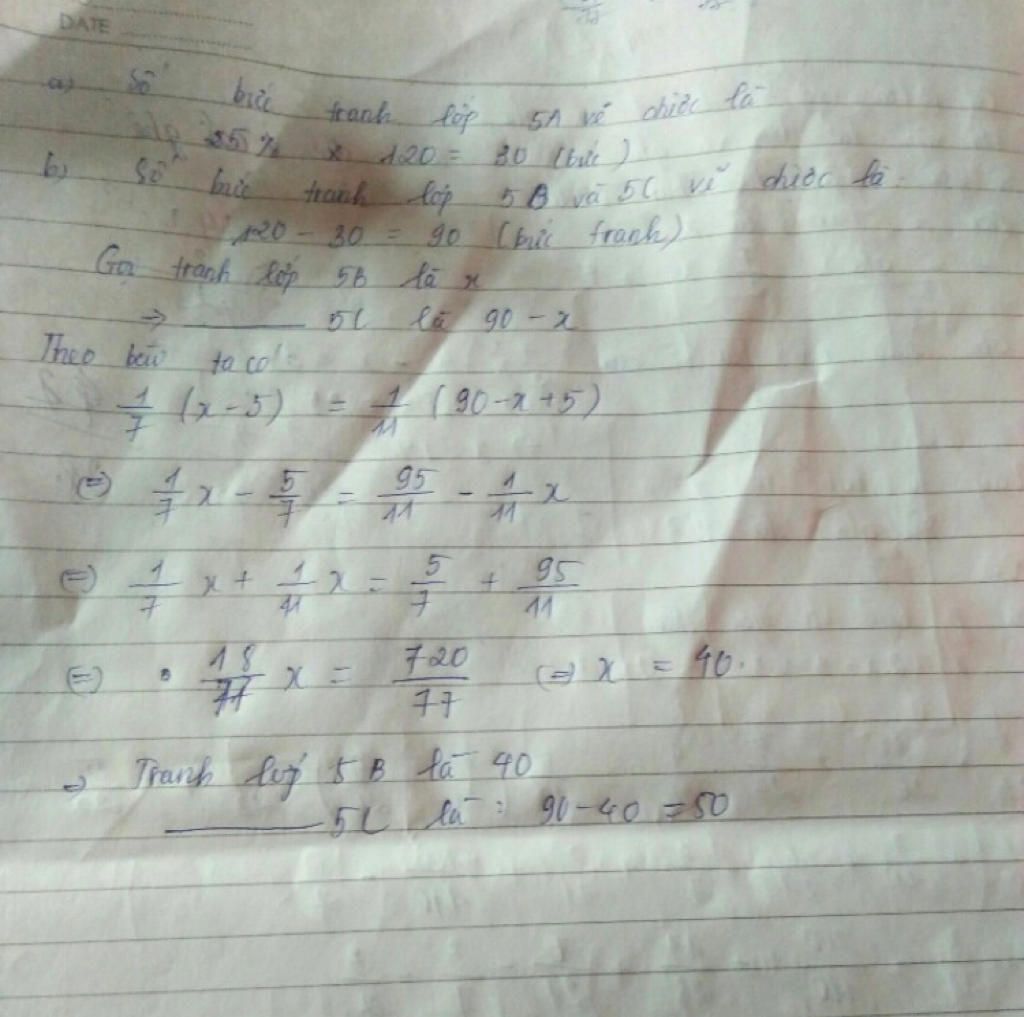 DATE
a) Số bức tranh lớp 5A vẽ được là
25% x 120 = 30 (bức)
b) Số bức tranh lớp 5B và 5C vẽ được là
120 - 30 = 90 (bức tranh)
Gọi tranh lớp 5B là x
⇒ ——— 5C là 90 - x
Theo bài ta có:
1/7 (x - 5) = 1/11 (90 - x + 5)
(=) 1/7 x - 5/7 = 95/11 - 1/11 x
(=) 1/7 x + 1/11 x = 5/7 + 95/11
(=) 18/77 x = 720/77 (=) x = 40.
⇒ Tranh lớp 5B là 40
——— 5C là : 90 - 40 = 50